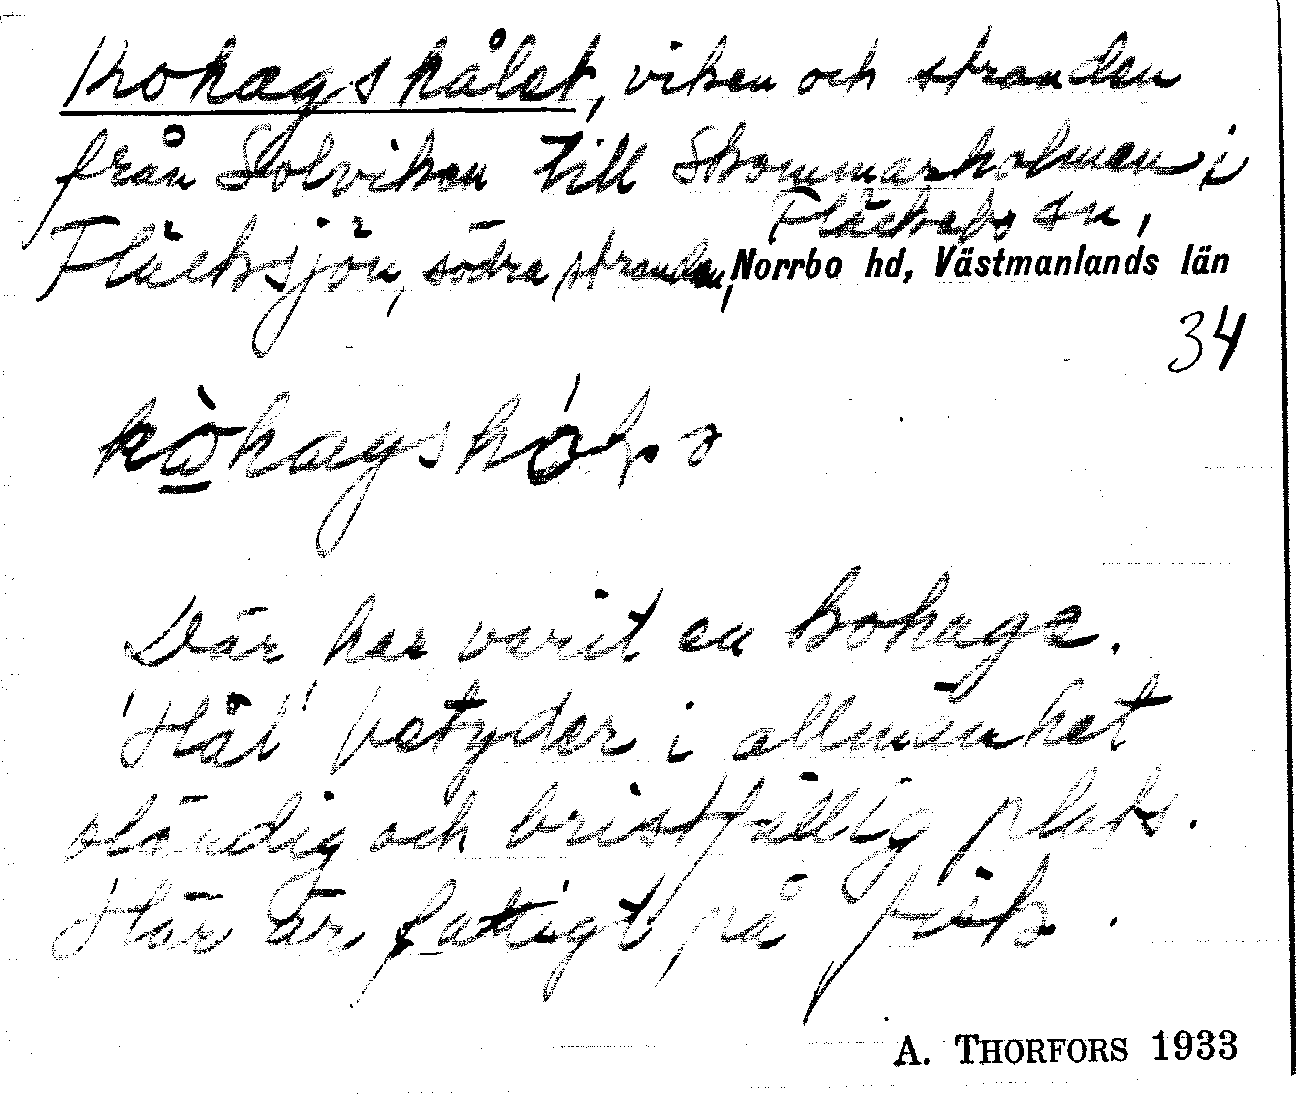 Kohagshålet, viken och stranden
från Solviken till Skommarholmen i
Fläckebo sn,
Fläcksjön, södra stranden, Norrbo hd, Västmanlands län
34
Där har varit en kohage.
'Hål' betyder i allmänhet
eländig och bristfällig plats.
Här är fattigt på fisk.
A. THORFORS 1933